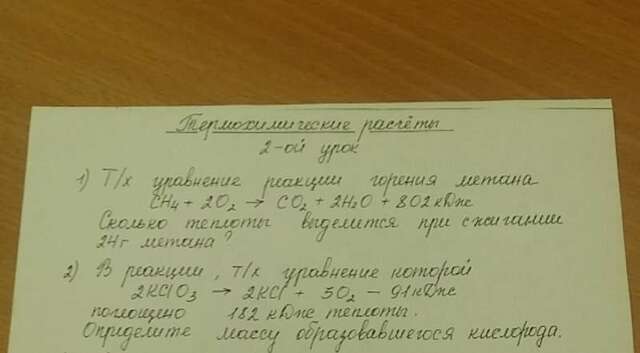 Термохимические расчёты
2-ой урок
1) Т/х уравнение реакции горения метана
CH₄ + 2O₂ → CO₂ + 2H₂O + 802 кДж
Сколько теплоты выделится при сжигании
24г метана?
2) В реакции, т/х уравнение которой
2KClO₃ → 2KCl + 3O₂ – 91 кДж
поглощено 182 кДж теплоты.
Определите массу образовавшегося кислорода.